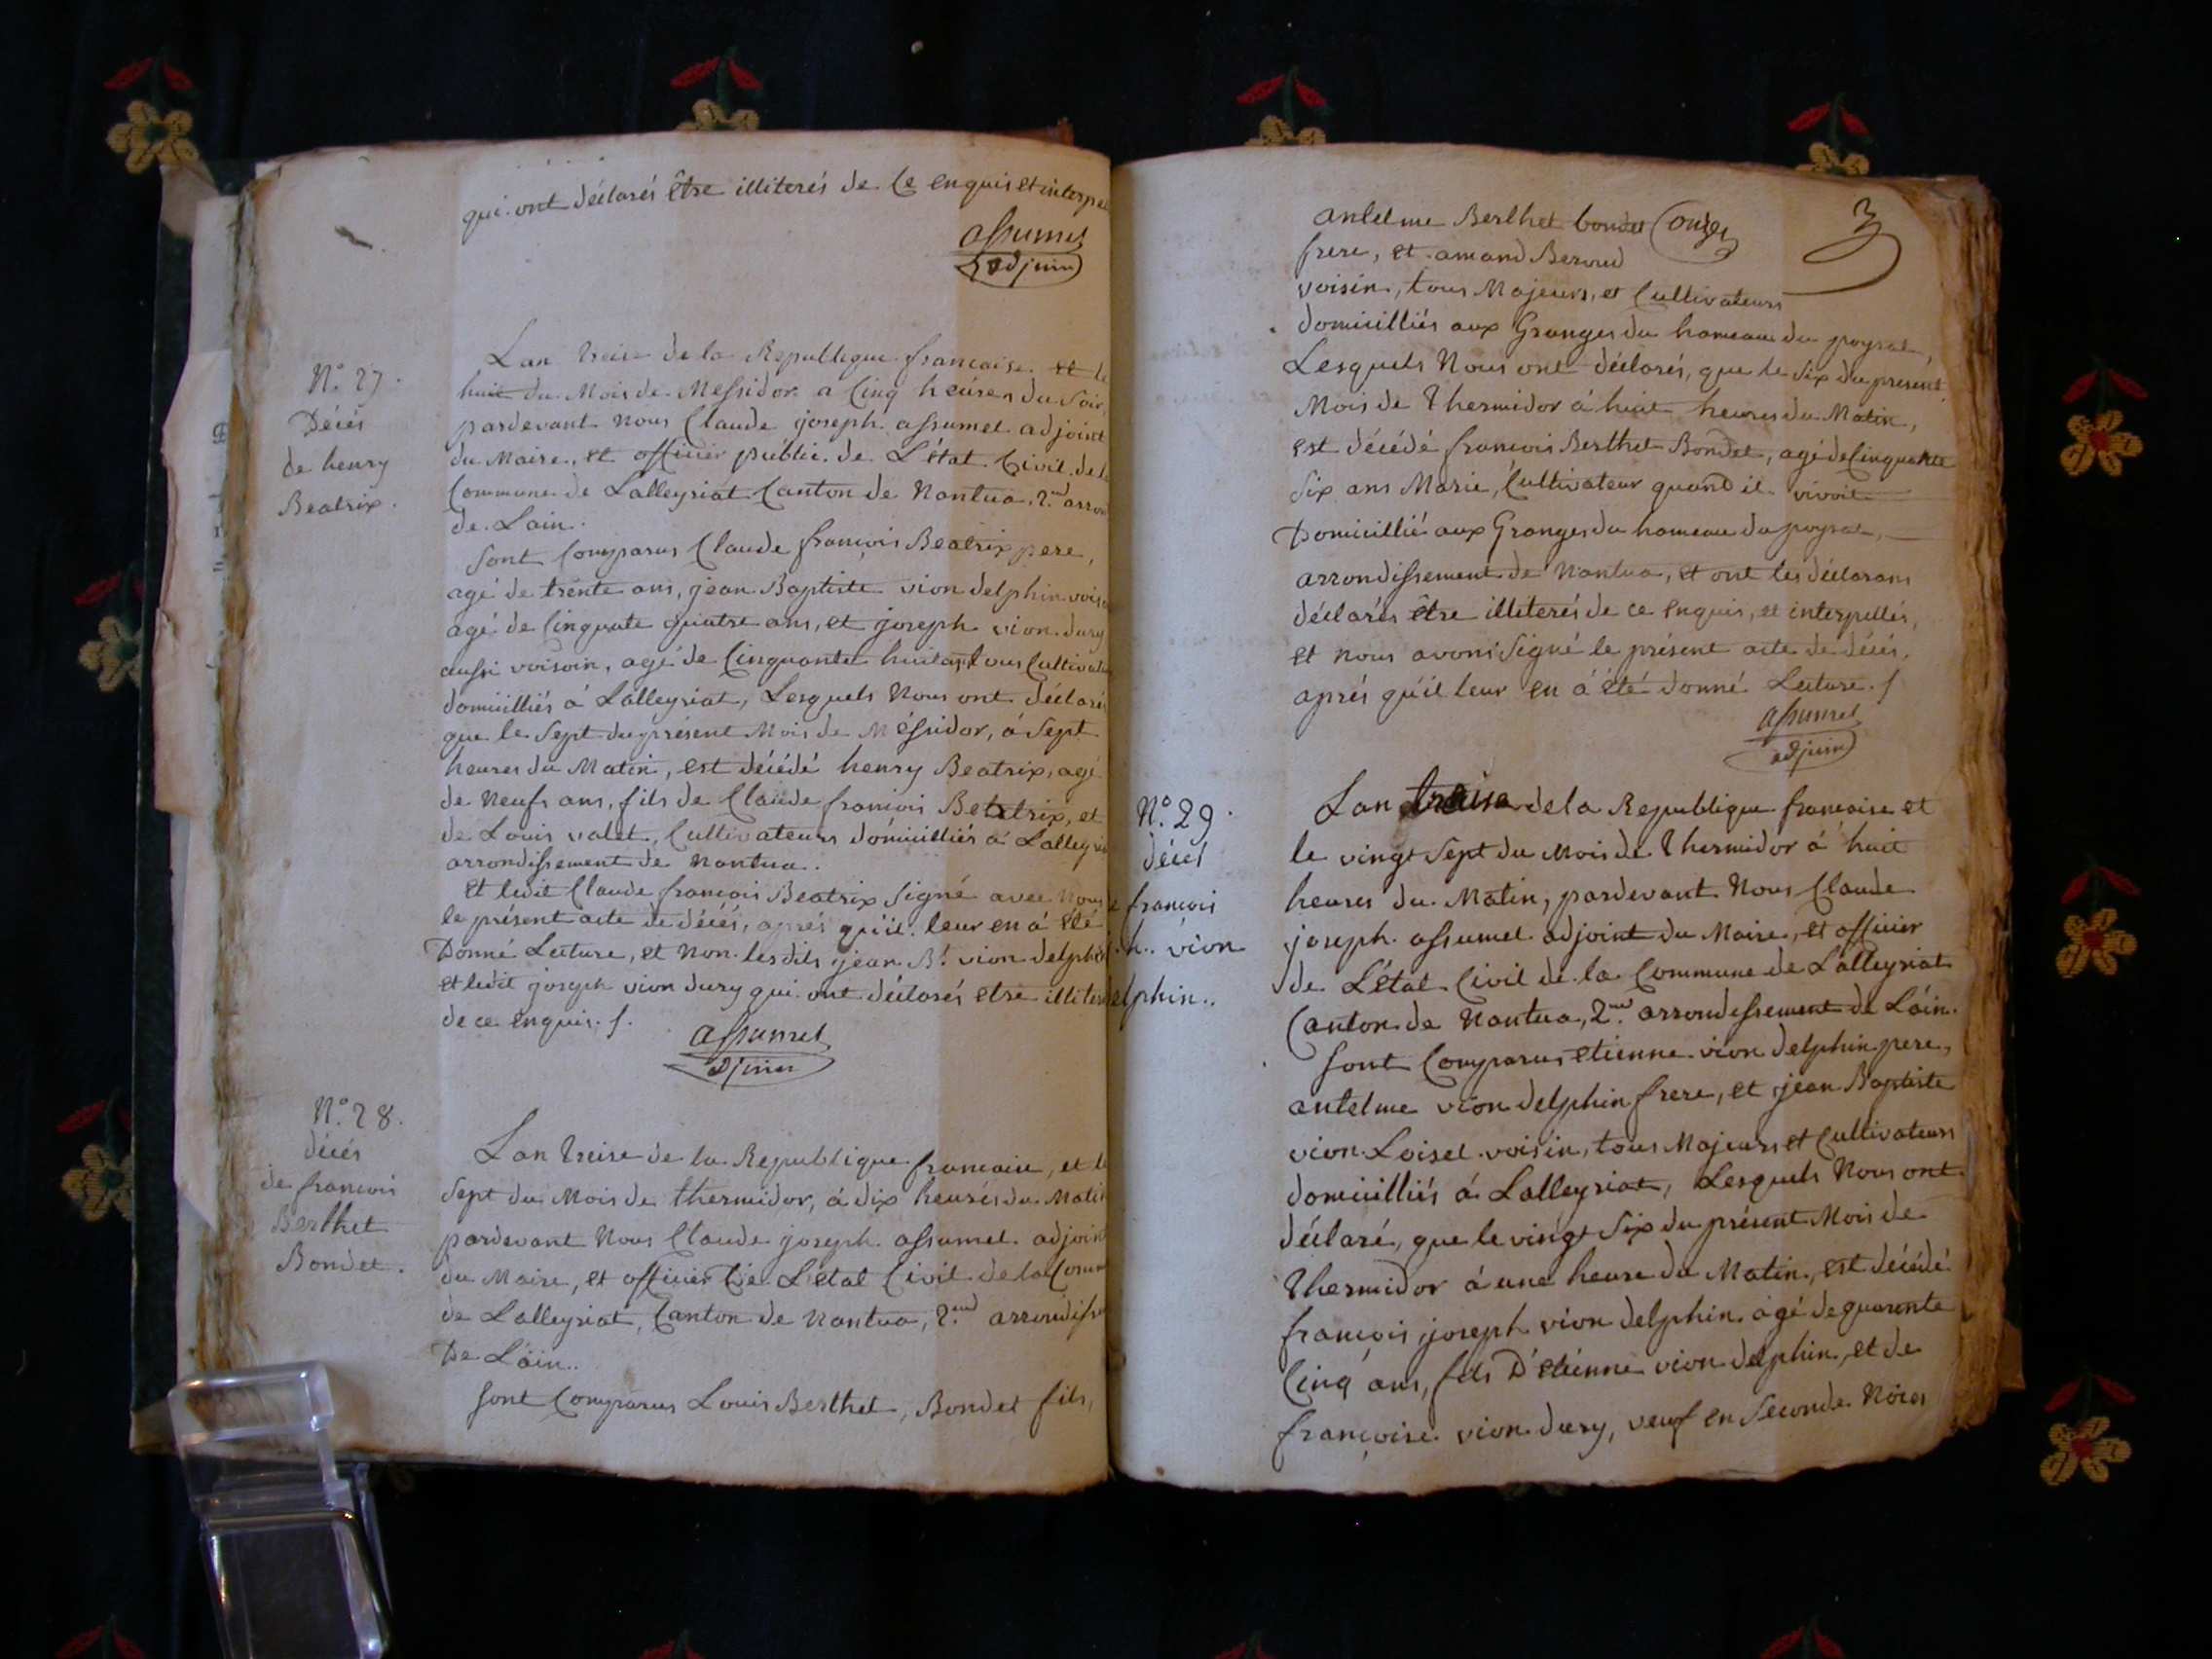 qui ont déclarés être illiterés de ce enquis et interpe
assumel
adjoin
N.° 27.
Décés
de henry
Beatrix.
Lan treise de la Republique francaise et le
huit du Mois de Messidor a Cinq heures du Soir,
pardevant nous Claude joseph assumel adjoint
du Maire, et officier públic de L'état Civil de la
Commune de Lalleyriat Canton de Nantua, 2.me arron
de Lain.
Sont Comparus Claude françois Beatrix pere,
agé de trente ans, jean Baptiste vion delphin voisin
agé de Cinquate quatre ans, et joseph vion dury
aussi voisoin, agé de Cinquante huit ans, tous Cultivate
domicilliés á Lalleyriat, Lesquels Nous ont déclarés
que le Sept du présent Mois de Méssidor, á Sept
heures du Matin, est décédé henry Beatrix, agé
de Neufs ans, fils de Claude françois Beatrix, et
de Louis valet, Cultivateurs domicilliés á Lalleyria
arrondissement de Nantua.
Et ledit Claude françois Beatrix Signé avec Nous
le présent acte de décés, aprés qu'il leur en á été
Donné Lecture, et Non lesdits jean B.t vion delphin
et ledit joseph vion dury qui ont déclarés etre illiteré
de ce enquis. /.
assumel
adjoin
N.° 28.
décés
de francois
Berthet
Bondet.
Lan treise de la Republique francaise, et le
Sept du Mois de thermidor, á dix heures du Matin
pardevant Nous Claude joseph assumel adjoint
du Maire, et officier de L'etat Civil de la Comm
de Lalleyriat, Canton de Nantua, 2.me arrondisse
De L'áin.
Sont Comparus Louis Berthet, Bondet fils,
3
antelme Berthet bondet
frere, et amand Beroud
voisin, tous Majeurs, et Cultivateurs
domicilliés aux Granges du hameau du poysat,
Lesquels Nous ont déclarés, que le Six du present
Mois de Thermidor á huit heures du Matin,
est décédé francois Berthet Bondet, agé de Cinquante
Six ans Marié, Cultivateur quand il vivoit
Domicillié aux Granges du hameau du poysat,
arrondissement de Nantua, et ont les déclarans
déclarés être illiterés de ce enquis, et interpellés,
et nous avons Signé le présent acte de décés,
aprés qu'il leur en á été donné Lecture. /
assumel
adjoin
N.° 29.
décés
e françois
h. vion
elphin..
Lan treise de la Republique francaise et
le vingt Sept du Mois de Thermidor á huit
heures du Matin, pardevant Nous Claude
joseph assumel adjoint du Maire, et officier
de L'état Civil de la Commune de Lalleyriat
Canton de Nantua, 2.me arrondissement de L'áin.
Sont Comparus etienne vion delphin pere,
antelme vion delphin frere, et jean Baptiste
vion Loiset voisin, tous Majeurs et Cultivateurs
domicilliés á Lalleyriat, Lesquels Nous ont
déclaré, que le vingt Six du présent Mois de
Thermidor á une heure du Matin, est décédé
françois joseph vion delphin agé de quarente
Cinq ans, fils D'etienne vion delphin, et de
françoise vion dury, veuf en Seconde Nôces